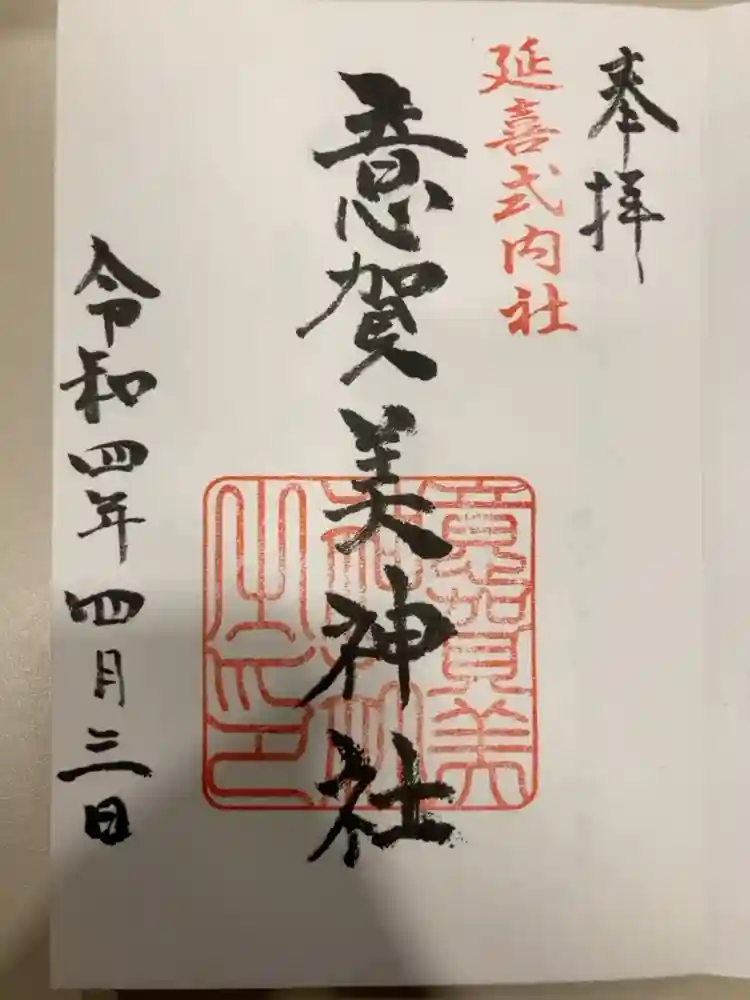 奉拝
延喜式内社
意賀美神社
意賀美
神社
之印
令和四年四月三日